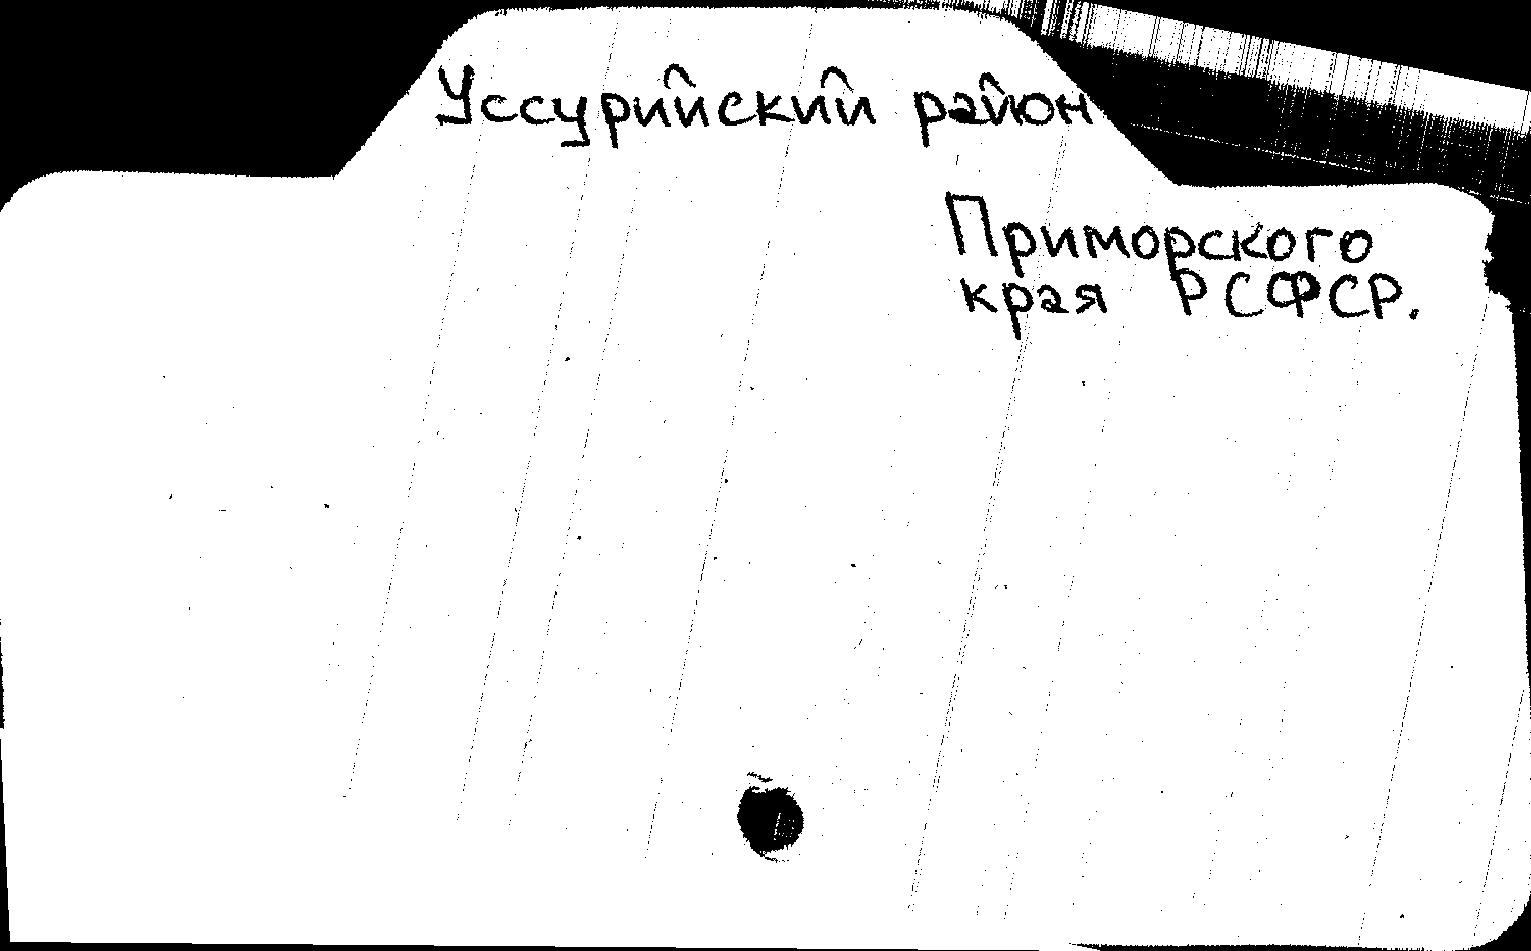 Уссурийский район
Приморского
края РСФСР.